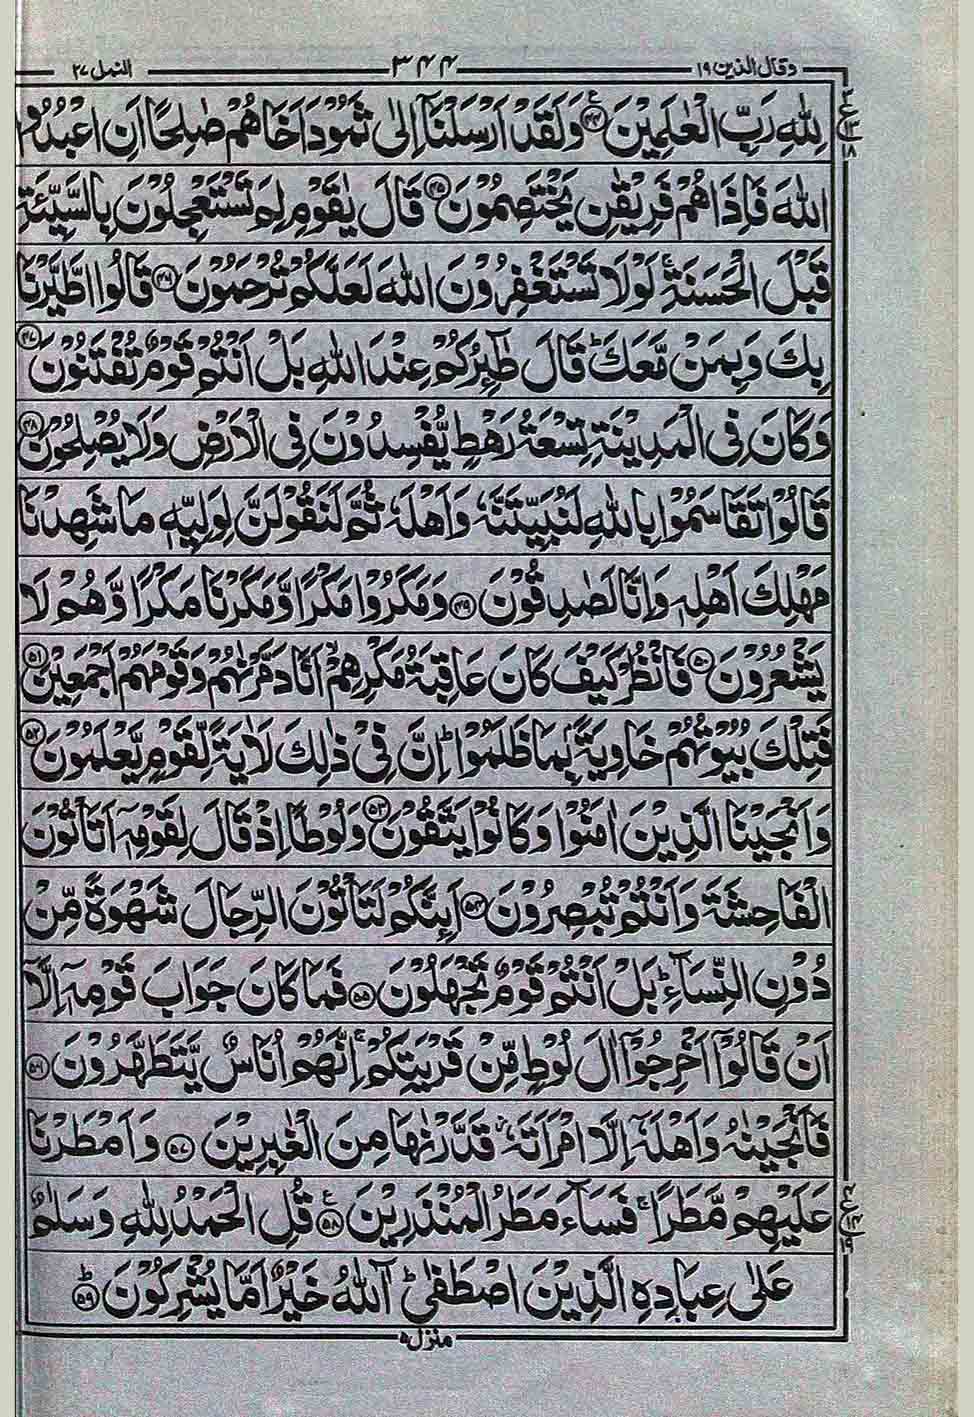 وقال الذین ۱۹ ۳۴۴ النمل ۲۷
لِلّٰهِ رَبِّ الْعٰلَمِیْنَ ﴿۴۴﴾ وَ لَقَدْ اَرْسَلْنَاۤ اِلٰی ثَمُوْدَ اَخَاهُمْ صٰلِحًا اَنِ اعْبُدُوا
اللّٰهَ فَاِذَا هُمْ فَرِیْقٰنِ یَخْتَصِمُوْنَ ﴿۴۵﴾ قَالَ یٰقَوْمِ لِمَ تَسْتَعْجِلُوْنَ بِالسَّیِّئَةِ
قَبْلَ الْحَسَنَةِ ۚ لَوْلَا تَسْتَغْفِرُوْنَ اللّٰهَ لَعَلَّكُمْ تُرْحَمُوْنَ ﴿۴۶﴾ قَالُوا اطَّیَّرْنَا
بِكَ وَ بِمَنْ مَّعَكَ ؕ قَالَ طٰٓئِرُكُمْ عِنْدَ اللّٰهِ بَلْ اَنْتُمْ قَوْمٌ تُفْتَنُوْنَ ﴿۴۷﴾
وَ كَانَ فِی الْمَدِیْنَةِ تِسْعَةُ رَهْطٍ یُّفْسِدُوْنَ فِی الْاَرْضِ وَ لَا یُصْلِحُوْنَ ﴿۴۸﴾
قَالُوْا تَقَاسَمُوْا بِاللّٰهِ لَنُبَیِّتَنَّهٗ وَ اَهْلَهٗ ثُمَّ لَنَقُوْلَنَّ لِوَلِیِّهٖ مَا شَهِدْنَا
مَهْلِكَ اَهْلِهٖ وَ اِنَّا لَصٰدِقُوْنَ ﴿۴۹﴾ وَ مَكَرُوْا مَكْرًا وَّ مَكَرْنَا مَكْرًا وَّ هُمْ لَا
یَشْعُرُوْنَ ﴿۵۰﴾ فَانْظُرْ كَیْفَ كَانَ عَاقِبَةُ مَكْرِهِمْ ۙ اَنَّا دَمَّرْنٰهُمْ وَ قَوْمَهُمْ اَجْمَعِیْنَ ﴿۵۱﴾
فَتِلْكَ بُیُوْتُهُمْ خَاوِیَةًۢ بِمَا ظَلَمُوْا ؕ اِنَّ فِیْ ذٰلِكَ لَاٰیَةً لِّقَوْمٍ یَّعْلَمُوْنَ ﴿۵۲﴾
وَ اَنْجَیْنَا الَّذِیْنَ اٰمَنُوْا وَ كَانُوْا یَتَّقُوْنَ ﴿۵۳﴾ وَ لُوْطًا اِذْ قَالَ لِقَوْمِهٖۤ اَتَاْتُوْنَ
الْفَاحِشَةَ وَ اَنْتُمْ تُبْصِرُوْنَ ﴿۵۴﴾ اَئِنَّكُمْ لَتَاْتُوْنَ الرِّجَالَ شَهْوَةً مِّنْ
دُوْنِ النِّسَآءِ ؕ بَلْ اَنْتُمْ قَوْمٌ تَجْهَلُوْنَ ﴿۵۵﴾ فَمَا كَانَ جَوَابَ قَوْمِهٖۤ اِلَّاۤ
اَنْ قَالُوْۤا اَخْرِجُوْۤا اٰلَ لُوْطٍ مِّنْ قَرْیَتِكُمْ ۚ اِنَّهُمْ اُنَاسٌ یَّتَطَهَّرُوْنَ ﴿۵۶﴾
فَاَنْجَیْنٰهُ وَ اَهْلَهٗۤ اِلَّا امْرَاَتَهٗ ؗ قَدَّرْنٰهَا مِنَ الْغٰبِرِیْنَ ﴿۵۷﴾ وَ اَمْطَرْنَا
عَلَیْهِمْ مَّطَرًا ۚ فَسَآءَ مَطَرُ الْمُنْذَرِیْنَ ﴿۵۸﴾ قُلِ الْحَمْدُ لِلّٰهِ وَ سَلٰمٌ
عَلٰی عِبَادِهِ الَّذِیْنَ اصْطَفٰی ؕ آٰللّٰهُ خَیْرٌ اَمَّا یُشْرِكُوْنَ ﴿۵۹﴾ؕ
منزل ۵
ع ۳ ۱۸
ع ۴ ۱۹